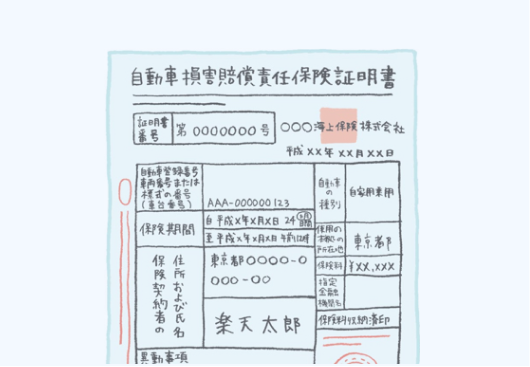 自動車損害賠償責任保険証明書
証明書番号
第 0000000 号
○○○海上保険株式会社
平成 XX 年 XX 月 XX 日
自動車登録番号
車両番号または
標識の番号
(車台番号)
AAA-000000123
自動車の種別
自家用乗用
保険期間
自 平成X年X月X日 24
至 平成X年X月X日 午前12時
使用の本拠の所在地
東京都
保険契約者の
住所および氏名
東京都○○○○-○
○○○-○○
楽天太郎
保険料
¥XX,XXX
指定金融機関名
保険料収納済印
異動事項